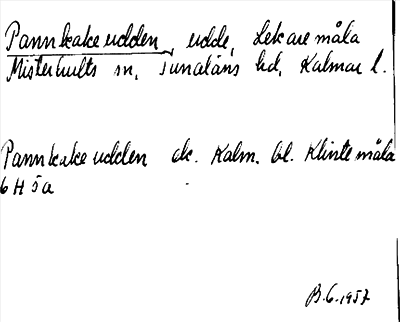 Pannkakeudden, udde, Lekaremåla
Misterhults sn, Tunaläns hd, Kalmar l.
Pannkakeudden ek. Kalm. bl. Klintemåla
6 H 5a
B.G. 1957